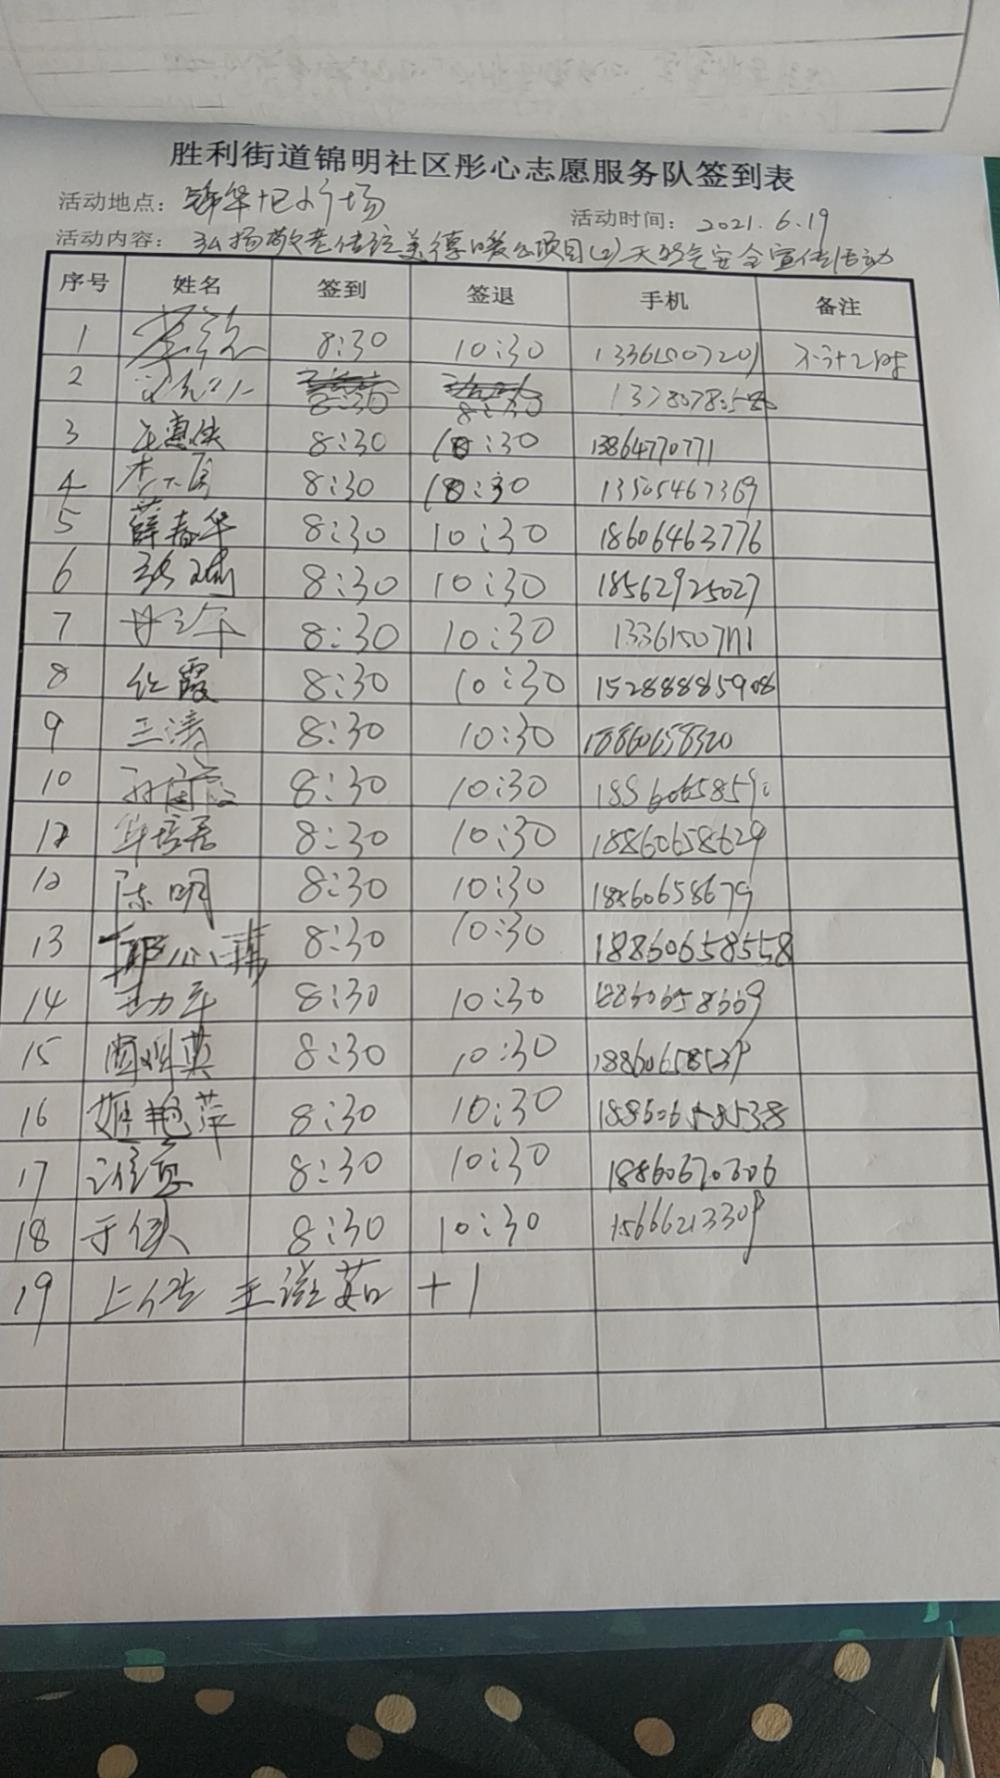 胜利街道锦明社区彤心志愿服务队签到表
活动地点： 锦华 广场 活动时间： 2021.6.19
活动内容： 弘扬敬老传统美德暖心项目(2)天然气安全宣传活动
序号 姓名 签到 签退 手机 备注
1 8:30 10:30 13361507201 不计时
2 8:30
3 王惠侠 8:30 10:30 13864770771
4 8:30 10:30 13505467369
5 薛春华 8:30 10:30 18606463776
6 8:30 10:30 18562925027
7 8:30 10:30 13361507111
8 红霞 8:30 10:30 152888885908
9 王涛 8:30 10:30 18860658320
10 8:30 10:30
12 华培君 8:30 10:30 18860658629
12 陈明 8:30 10:30 18860658679
13 8:30 10:30 18860658558
14 8:30 10:30 18860658669
15 8:30 10:30
16 姬艳萍 8:30 10:30 18860658538
17 8:30 10:30 18860670606
18 于侠 8:30 10:30 15666213309
19 上传 王滋茹 +1